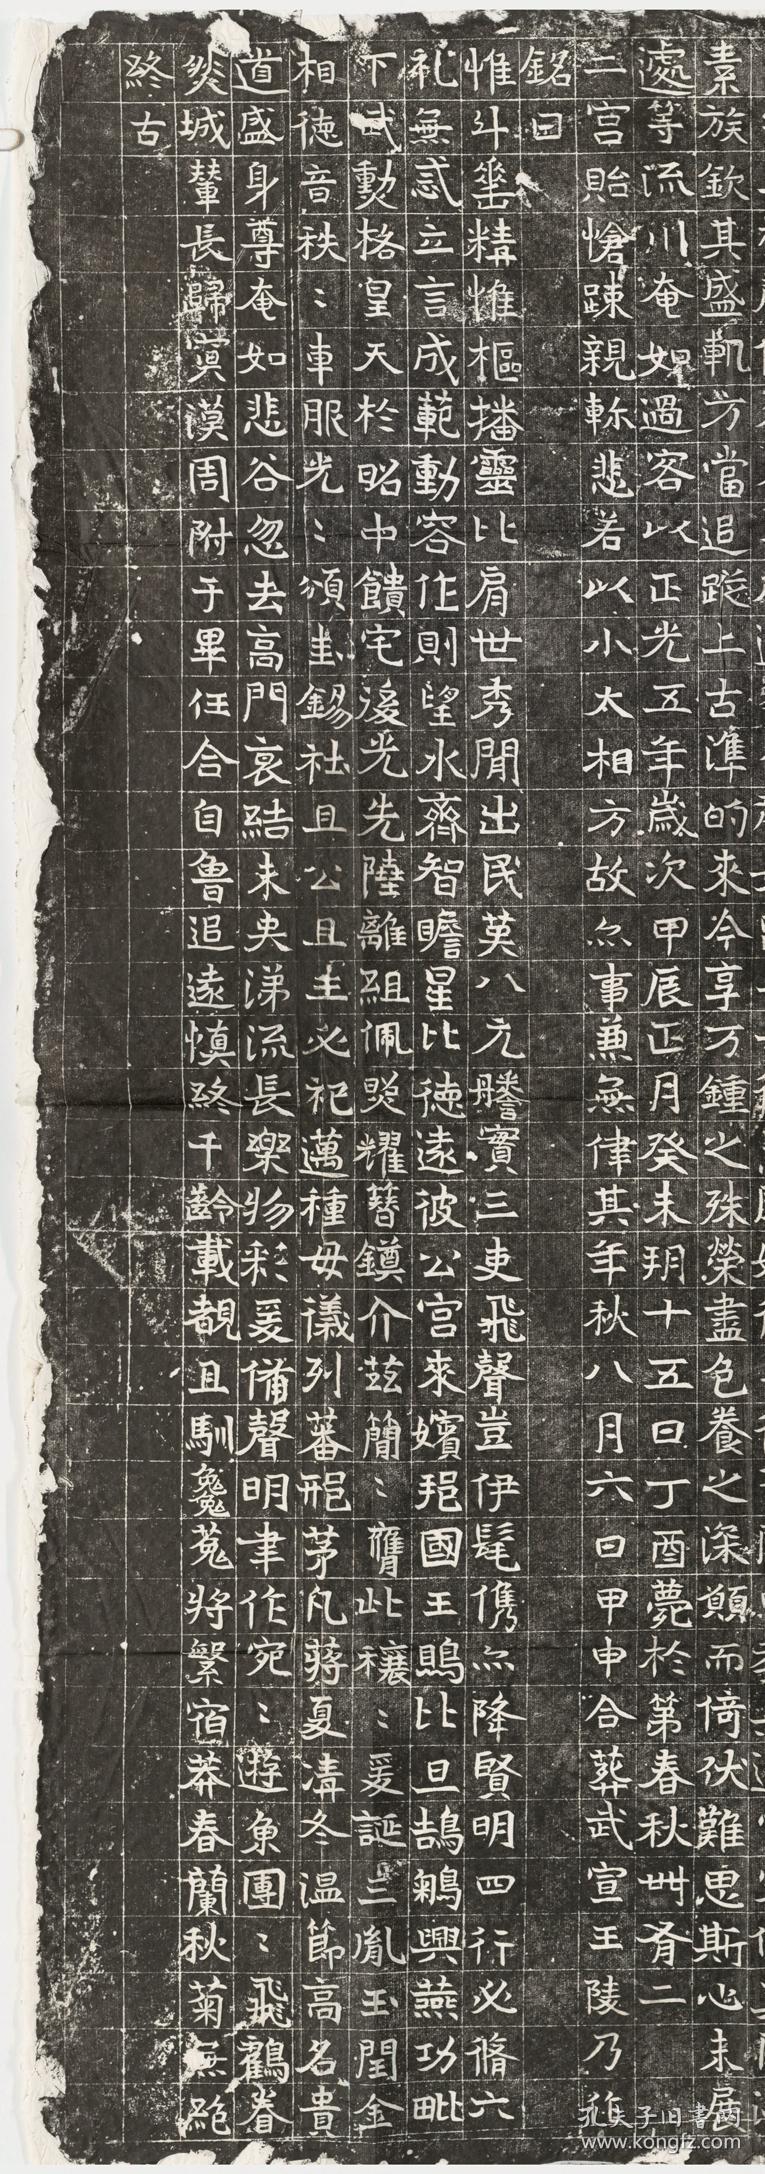 素族欽其盛軌方當追蹤上古準的來今享万鍾之殊榮盡色養之深願而倚伏難思斯心未展
處等流川奄如過客以正光五年歲次甲辰正月癸未玥十五日丁酉薨於第春秋卌有二
二宮貽愴踈親軫悲若以小大相方故尒事兼無律其年秋八月六日甲申合葬武宣王陵乃作
銘曰
惟斗垂精惟樞播靈比肩世秀閒出民英八元騰實三吏飛聲豈伊髦儁尒降賢明四行必脩六
礼無忒立言成範動容作則望水齊智瞻星比德遠彼公宮來嬪邦國王鴡比旦鵠鵴興燕功毗
下武勳格皇天於昭中饋宅後光先陸離組佩照耀簪鐏介茲簡〻膺此穰〻爰誕三胤玉閏金
相德音秩〻車服光〻頒圭錫社且公且主必祀邁種毋儀列蕃邢茅凡蔣夏凊冬温節高名貴
道盛身尊奄如悲谷忽去高門哀結未央涕流長樂物彩爰備聲明聿作宛〻遊魚團〻飛鸖眷
城輦長歸寞漠周附于畢任合自魯追遠慎終千齡載覩且馴㲋菟將繁宿莽春蘭秋菊無絕
終古
孔夫子旧书网
www.kongfz.com